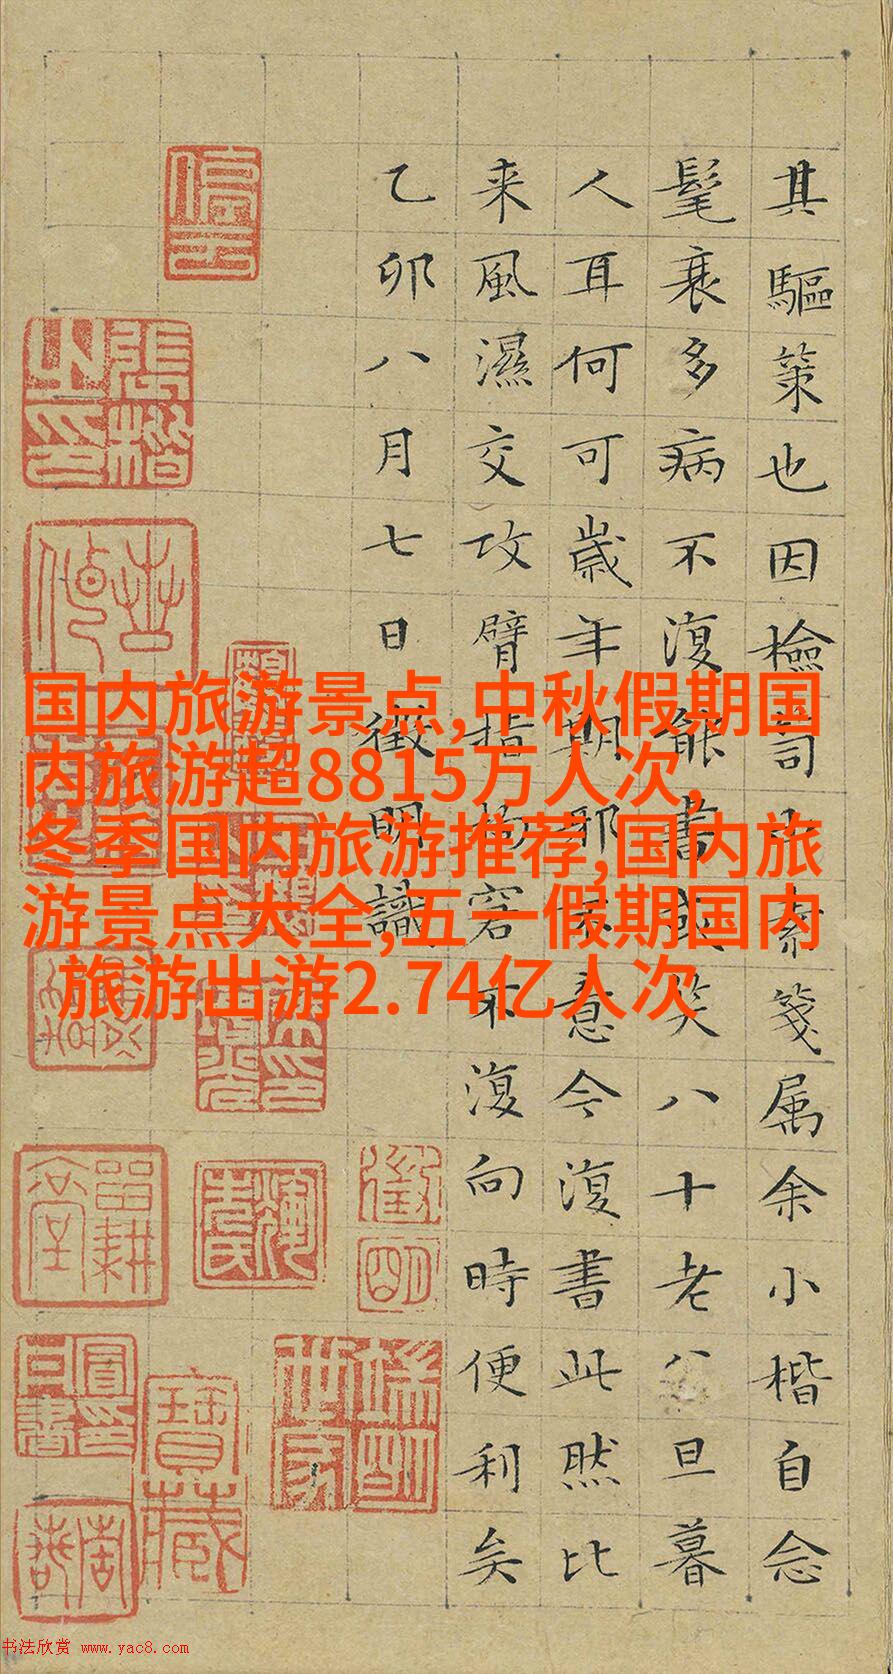 国内旅游景点,中秋假期国
内旅游超8815万人次,
冬季国内旅游推荐,国内旅
游景点大全,五一假期国内
旅游出游2.74亿人次
其驅策也因檢笥素箋属余小楷自念
髦衰多病不復能書或笑八十老旦暮
人耳何可歲年期耶不意今復書此然比
来風濕交攻臂指拘窘不復向時便利矣
乙卯八月七日徵明識
張楷之印
徵明
寶藏
书法欣赏 www.yac8.com